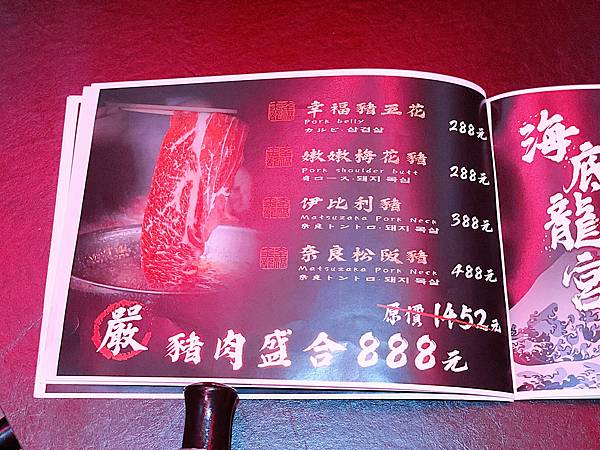 幸福豬五花 288元
Pork belly
カルビ·삼겹살
嫩嫩梅花豬 288元
Pork shoulder butt
肩ロース·돼지 목심
伊比利豬 388元
Matsuzaka Pork Neck
奈良トントロ·돼지 목살
奈良松阪豬 488元
Matsuzaka Pork Neck
奈良トントロ·돼지 목살
原價1452元
嚴 豬肉盛合888元
海底龍宮